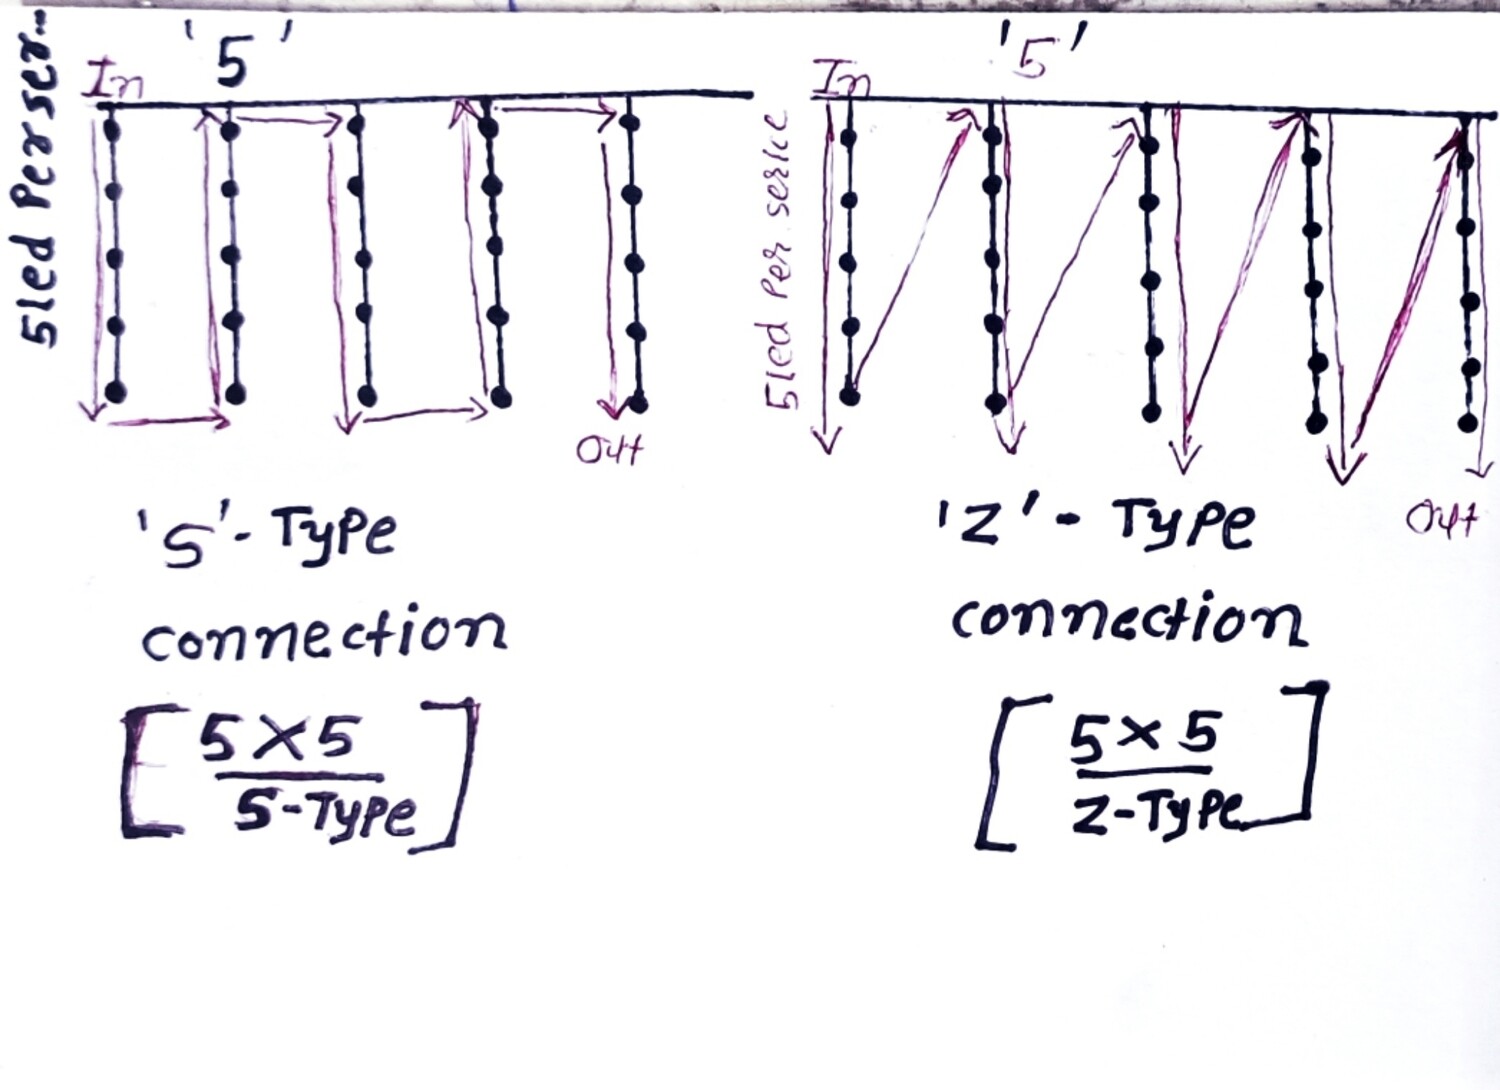 5led Per ser..
'5'
In
Out
'S'- Type
connection
[ 5X5
S-Type ]
'5'
In
5led Per serice
Out
'Z' - Type
connection
[ 5 x 5
Z-Type ]